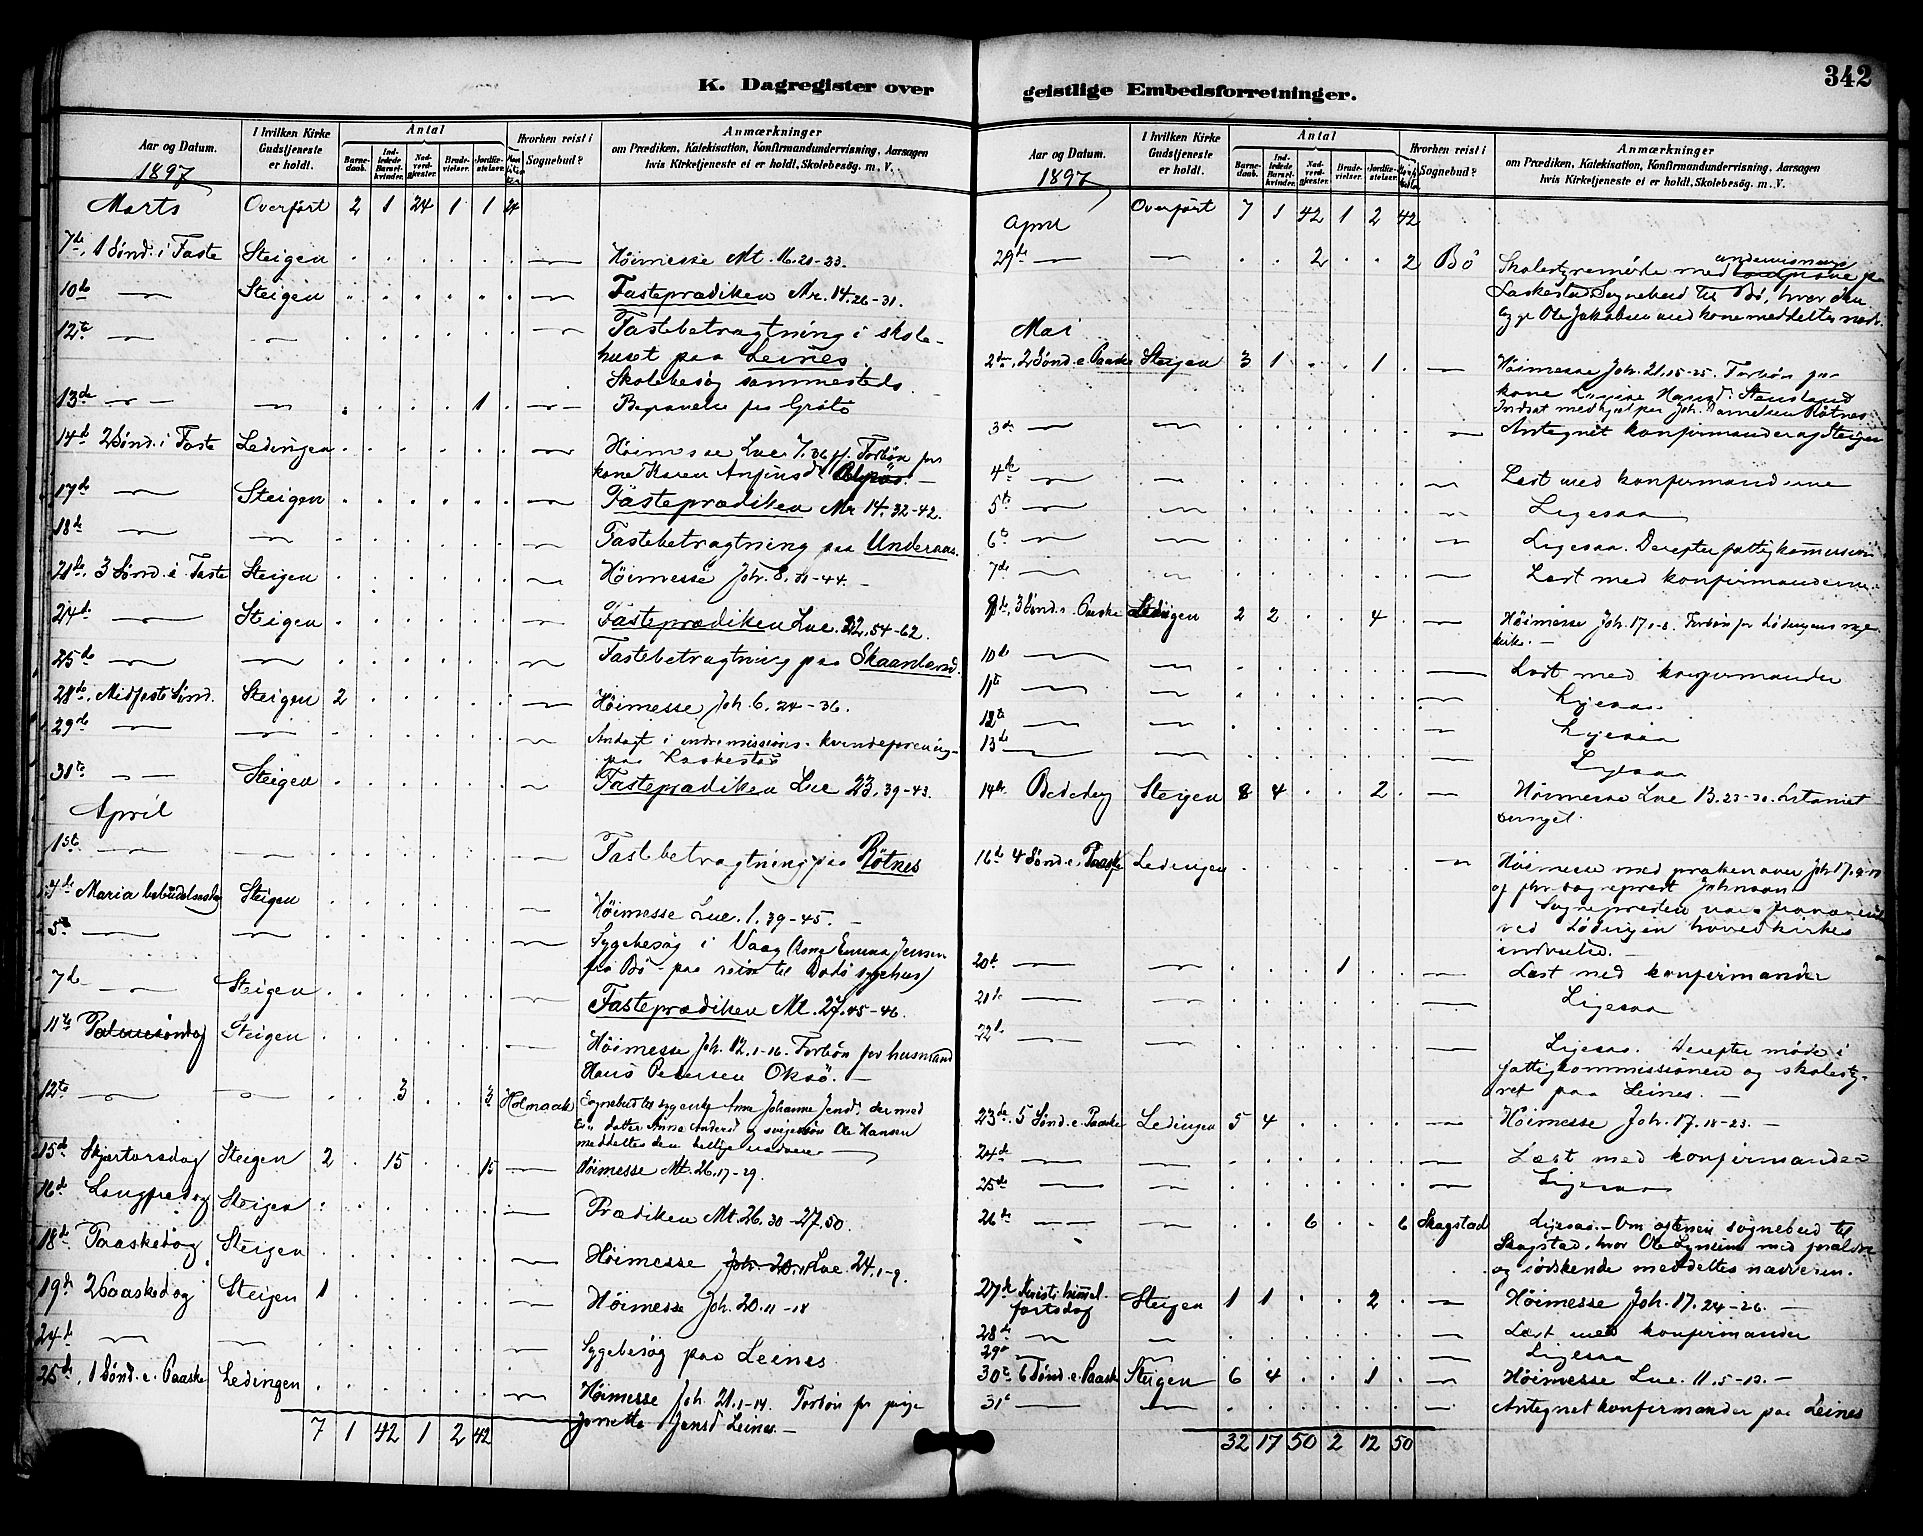 342
K. Dagregister over
geistlige Embedsforretninger.
Aar og Datum.
1897
I hvilken Kirke
Gudstjeneste
er holdt.
Antal
Barne-
daab.
Ind-
ledede
Barsel-
kvinder.
Nad-
verd-
gjester.
Brude-
vielser.
Jordfæ-
stelser.
Hvorhen reist i
Sognebud?
Anmærkninger
om Prædiken, Katekisation, Konfirmandundervisning, Aarsagen
hvis Kirketjeneste ei er holdt, Skolebesøg. m. V.
Marts Overført 2 1 24 1 1 24
7de, 1 Sønd. i Faste Steigen Høimesse Mt. 16.21-23.
10de Steigen Fasteprædiken Mr. 14.26-31.
12te Fastebetragtning i skole-
huset paa Leines.
Skolebesøg sammesteds.
13de 1 paa Grøtø
14de 2 Sønd. i Faste Ledingen Høimesse Luc. 7.36 ff. Forbøn for
kone Karen
17de Steigen Fasteprædiken Mr. 14.32-42.
18de Fastebetragtning paa Underaas.
21de, 3 Sønd. i Faste Steigen Høimesse Joh. 8.31-44.
24de Steigen Fasteprædiken Luc. 22.54-62.
25de Fastebetragtning paa Skaanland.
28de, Midfaste Sønd. Steigen 2 Høimesse Joh. 6.24-36.
29de Andagt i indremissions-kvindeforening
paa Laskestad
31te Steigen Fasteprædiken Luc. 23.39-43.
April
1ste Fastebetragtning paa Røtnes
Maria bebudelsesdag Steigen Høimesse Luc. 1.39-45.
5te Sygebesøg i Vaag (Kone Emma Jensen
fra Bø - paa reise til Bodø sygehus)
7de Steigen Fasteprædiken Mt. 27.45-46.
11te Palmesøndag Steigen Høimesse Joh. 12.1-16. Forbøn for husmand
Hans Petersen Oksø.
12te 3 3 Holmaak Sognebud til Anne Johanne Jensd. der med
datter Anna Andersd. og svigersøn Ole Hansen
meddeltes den hellige nadvere
15de Skjærtorsdag Steigen 2 15 15 Høimesse Mt. 26.17-29.
16de Langfredag Steigen Prædiken Mt. 26.30-27.50.
18de Paaskedag Steigen Høimesse Joh. 20.1 Luc. 24.1-9.
19de 2 Paaskedag Steigen 1 Høimesse Joh. 20.11-18
24de Sygebesøg paa Leines.
25de, 1 Sønd. e. Paaske Ledingen Høimesse Joh. 21.1-14. Forbøn for pige
Jensd. Leines.
7 1 42 1 2 42
Aar og Datum.
1897
I hvilken Kirke
Gudstjeneste
er holdt.
Antal
Barne-
daab.
Ind-
ledede
Barsel-
kvinder.
Nad-
verd-
gjester.
Brude-
vielser.
Jordfæ-
stelser.
Hvorhen reist i
Sognebud?
Anmærkninger
om Prædiken, Katekisation, Konfirmandundervisning, Aarsagen
hvis Kirketjeneste ei er holdt, Skolebesøg. m. V.
Overført 7 1 42 1 2 42
April
29de 2 2 Bø Skolestyremøde med undervisnings paa
Laskestad. Sognebud til Bø, hvor den
syge Ole Jakobsen med kone meddeltes nadv.
Mai
2de, 2 Sønd. e. Paaske Steigen 3 1 1 Høimesse Joh. 21.15-25. Forbøn for
kone Hansd. Stensland
Indsat medhjelper Joh. Danielsen Røtnes
3de Antegnet konfirmander af Steigen
4de Læst med konfirmanderne
5te Ligesaa
6te Ligesaa. Derefter fattigkommission
7de Læst med konfirmanderne.
9de, 3 Sønd. e. Paaske Ledingen 2 2 4 Høimesse Joh. 17.1-8. Forbøn for Lødingens nye
kirke.
10de Læst med konfirmander
11te Ligesaa.
12te Ligesaa
13de Ligesaa
14de Bededag Steigen 8 4 2 Høimesse Luc 13.23-30. Litaniet
sunget.
16de 4 Sønd. e. Paaske Ledingen Høimesse med præken over Joh 17.
Johnsen
Sognepresten var
ved Lødingen hovedkirkes
indvielse.
20de 1 Læst med konfirmander
21de Ligesaa
22de Ligesaa. Derefter møde i
fattigkommissionen og skolesty-
ret paa Leines.
23de 5 Sønd. e. Paaske Ledingen 5 4 Høimesse Joh. 17.18-23.
24de Læst med konfirmander
25de Ligesaa
26de 6 6 Skagstad Ligesaa. - Om aftenen sognebud til
Skagstad, hvor Ole med forældre
og søskende meddeltes nadveren.
27de Kristi himmel-
fartsdag Steigen 1 1 2 Høimesse Joh. 17.24-26.
28de Læst med konfirmander
29de Ligesaa
30te 6 Sønd. e. Paaske Steigen 6 4 1 Høimesse Luc. 11.5-13.
31te Antegnet konfirmander paa Leines
32 17 50 2 12 50